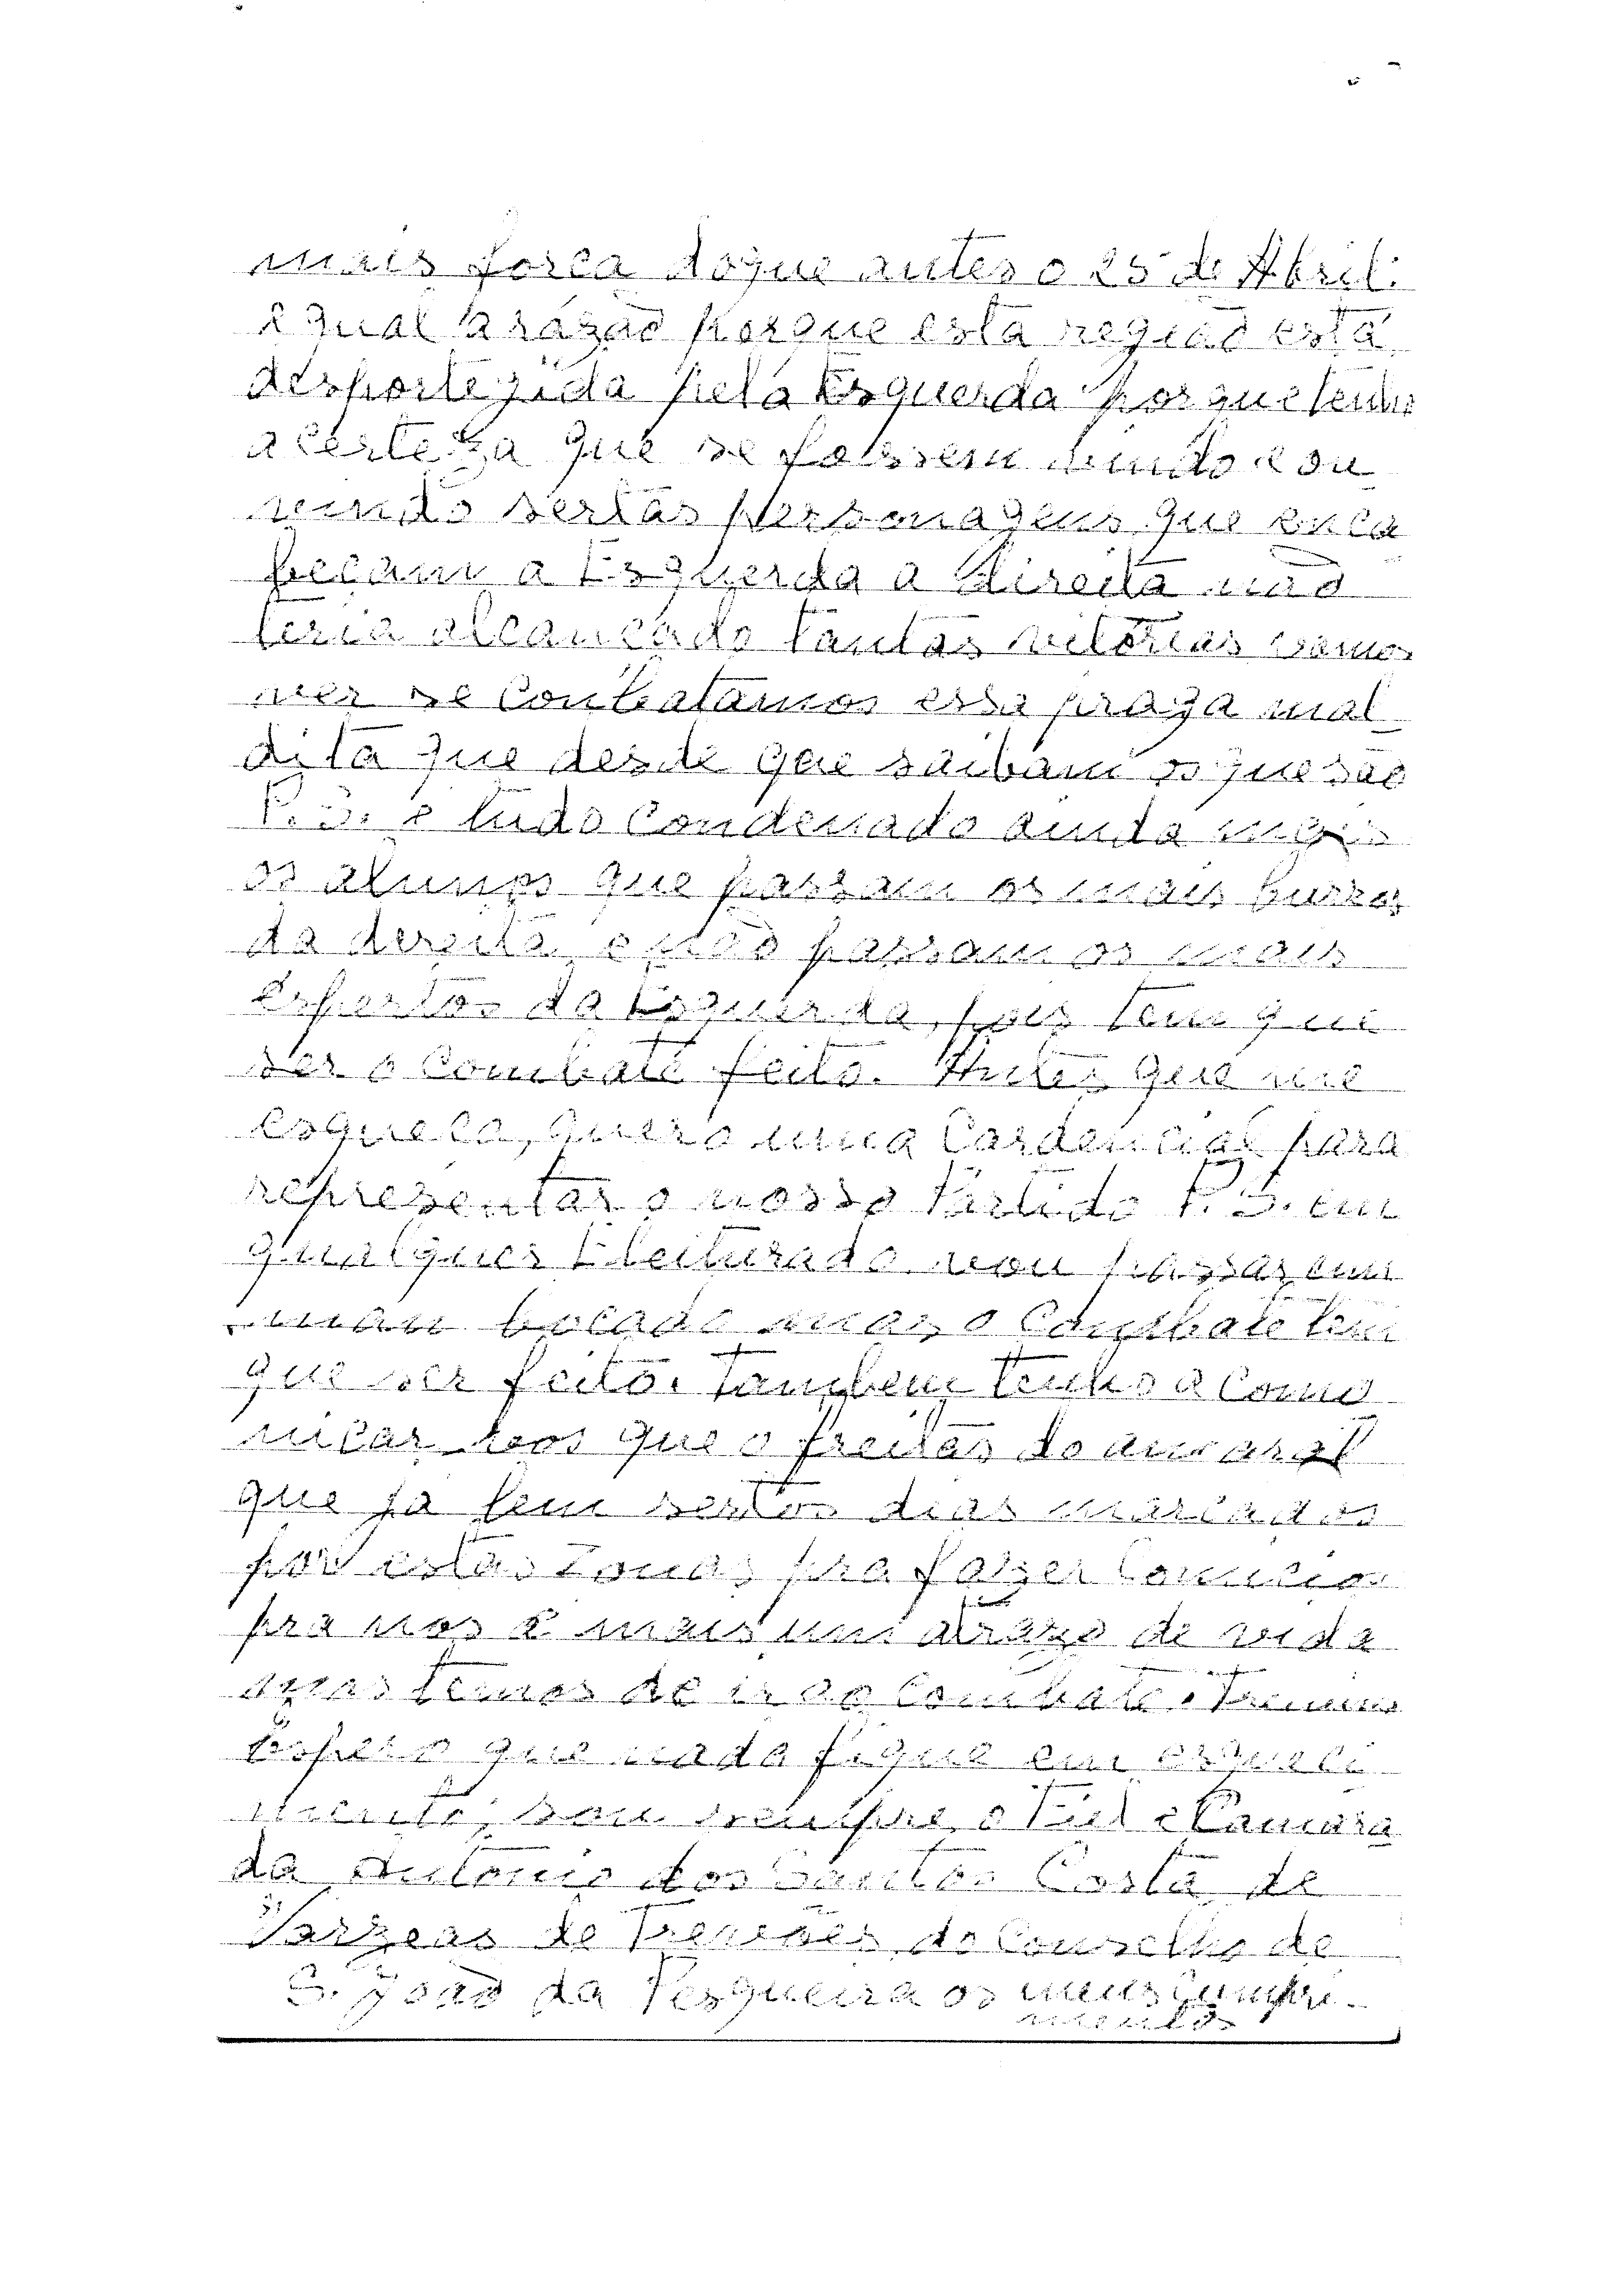 mais forca doque antes o 25 de Abril.
e qual a razão porque esta região está
desportegida pela Esquerda porque tenho
a certeza que se fossem vindo e ou
vindo sertas personagens que enca
beçam a Esquerda a Direita não
teria alcançado tantas vitórias vamos
ver se combatamos essa praga mal
dita que desde que saibam os que são
P.S. é tudo condenado ainda
os alunos que passam os mais burros
da direita e não passam os mais
espertos da Esquerda, pois tem que
ser o combate feito. Antes que me
esqueca, quero uma cardencial para
representar o nosso Partido P.S. em
qualquer Eleiturado vou passar um
mau bocado mas o combate tem
que ser feito. Tambem tenho a como
nicar vos que o freitas do amaral
que ja tem sertos dias marcados
por estas zonas pra fazer comicios
pra nos é mais um atrazo de vida
mas temos de ir ao combate.
Espero que nada fique em esqueci
mento, sou sempre o Fiel Camara
da António dos Santos Costa de
Varzeas de Trevões do Conselho de
S. João da Pesqueira os meus cumpri-
mentos